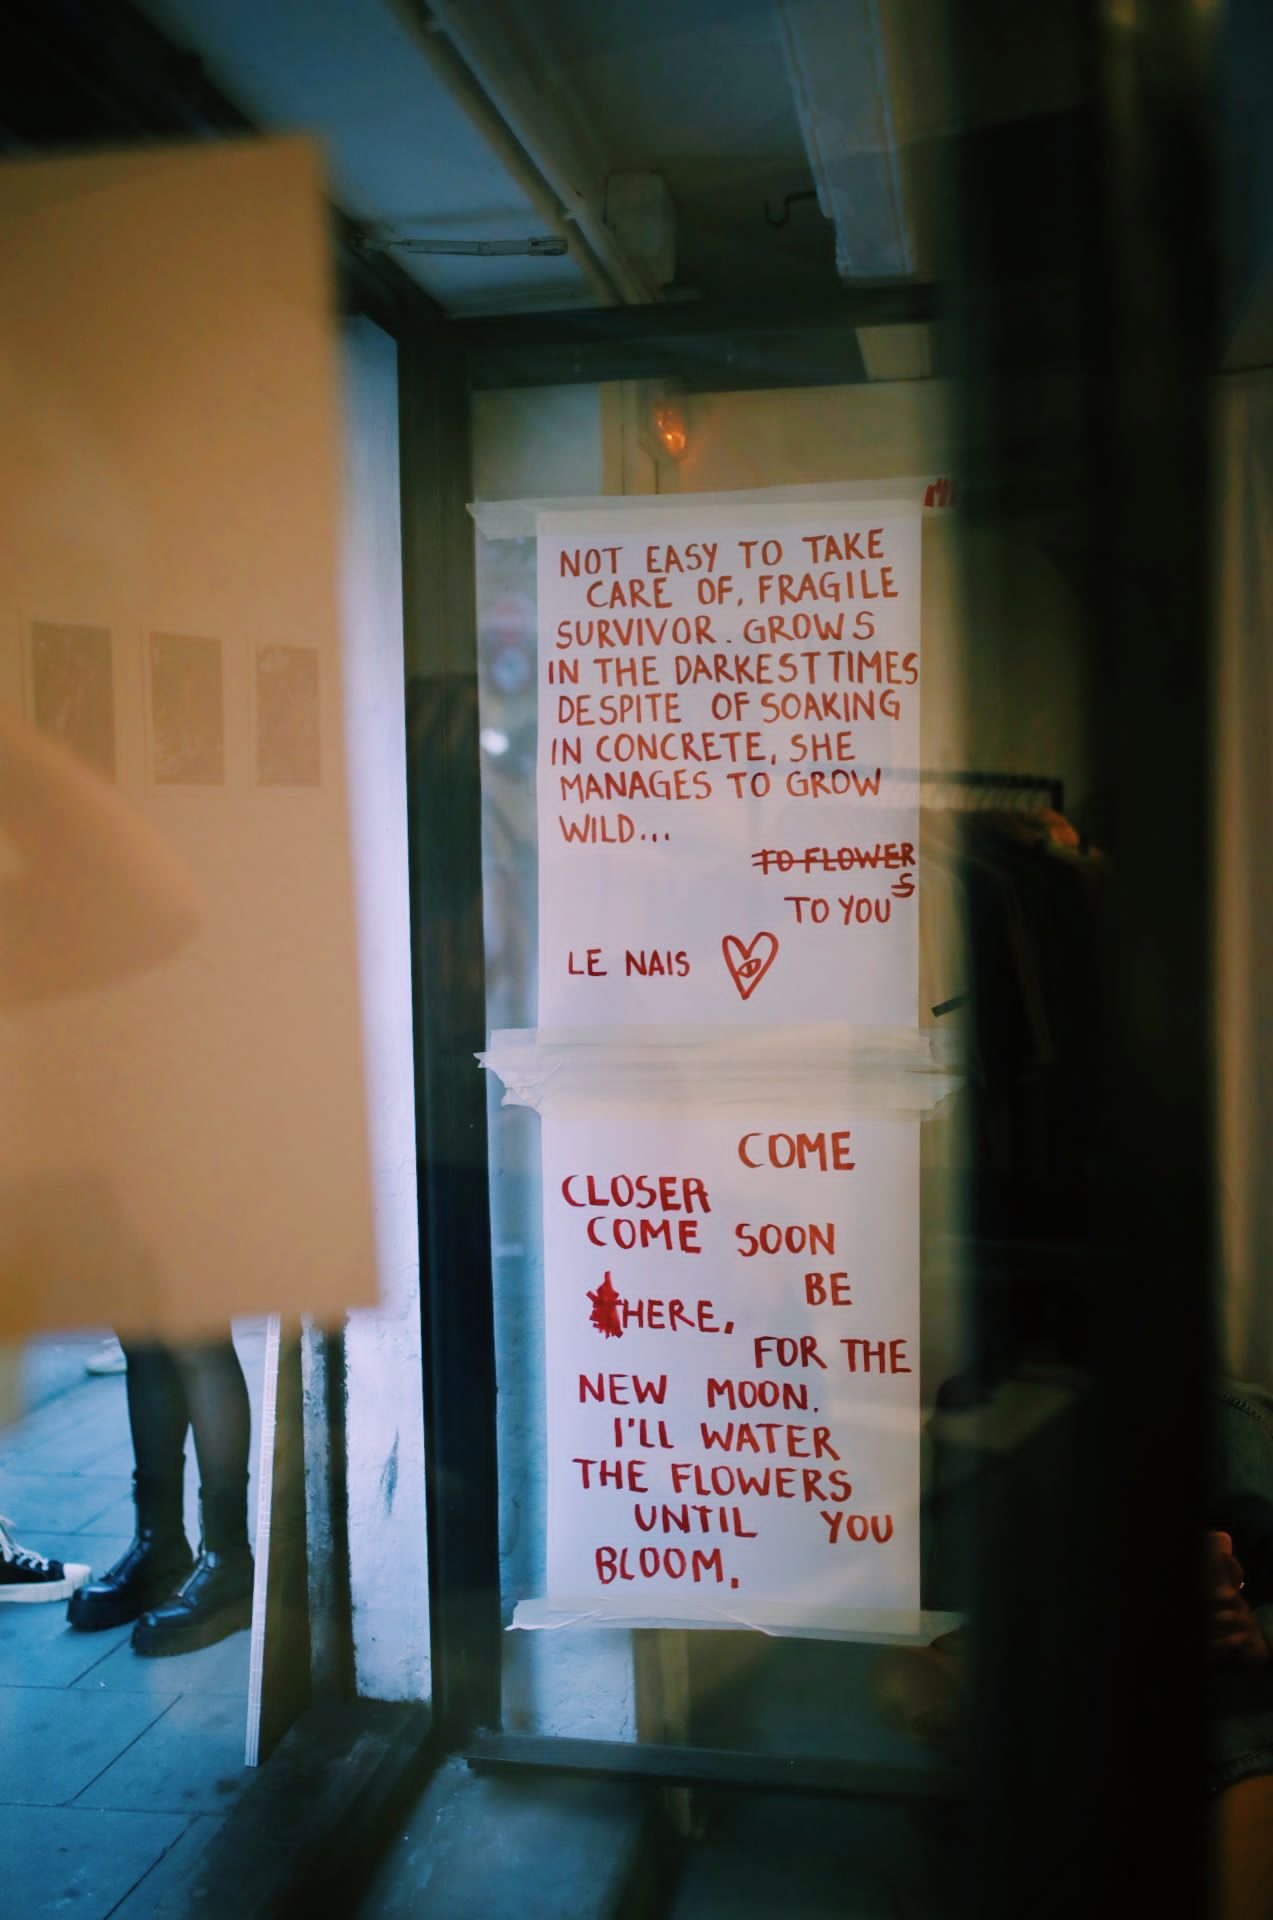 NOT EASY TO TAKE
CARE OF, FRAGILE
SURVIVOR. GROWS
IN THE DARKEST TIMES
DESPITE OF SOAKING
IN CONCRETE, SHE
MANAGES TO GROW
WILD...
TO FLOWER
S
TO YOU
LE NAIS
COME
CLOSER
COME SOON
BE
HERE,
FOR THE
NEW MOON.
I'LL WATER
THE FLOWERS
UNTIL YOU
BLOOM.